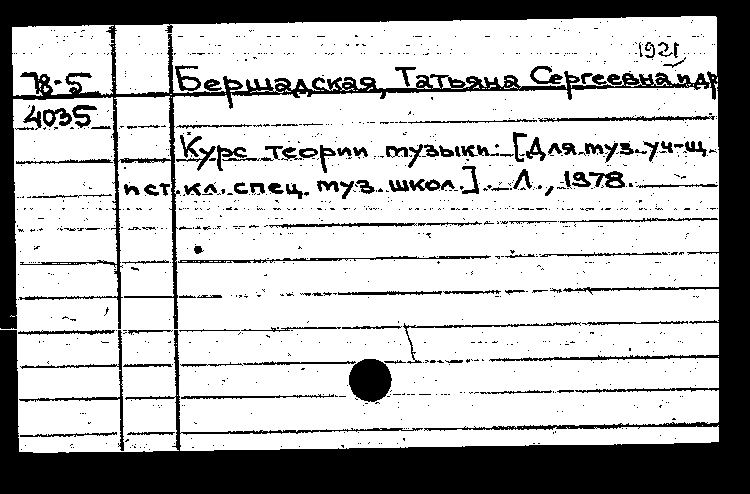 1921
78-5 Бершадская, Татьяна Сергеевна и др
4035
Курс теории музыки: [Для муз. уч-щ.
и ст. кл. спец. муз. школ.] Л., 1978.